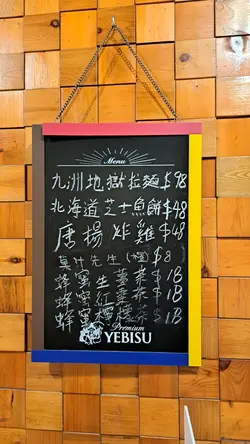 Menu
九洲地獄拉麵 $98
北海道芝士魚餅 $48
唐揚炸雞 $48
先生 $8
蜂蜜生薑茶 $18
蜂蜜紅棗茶 $18
蜂蜜檸檬茶 $18
Premium
YEBISU